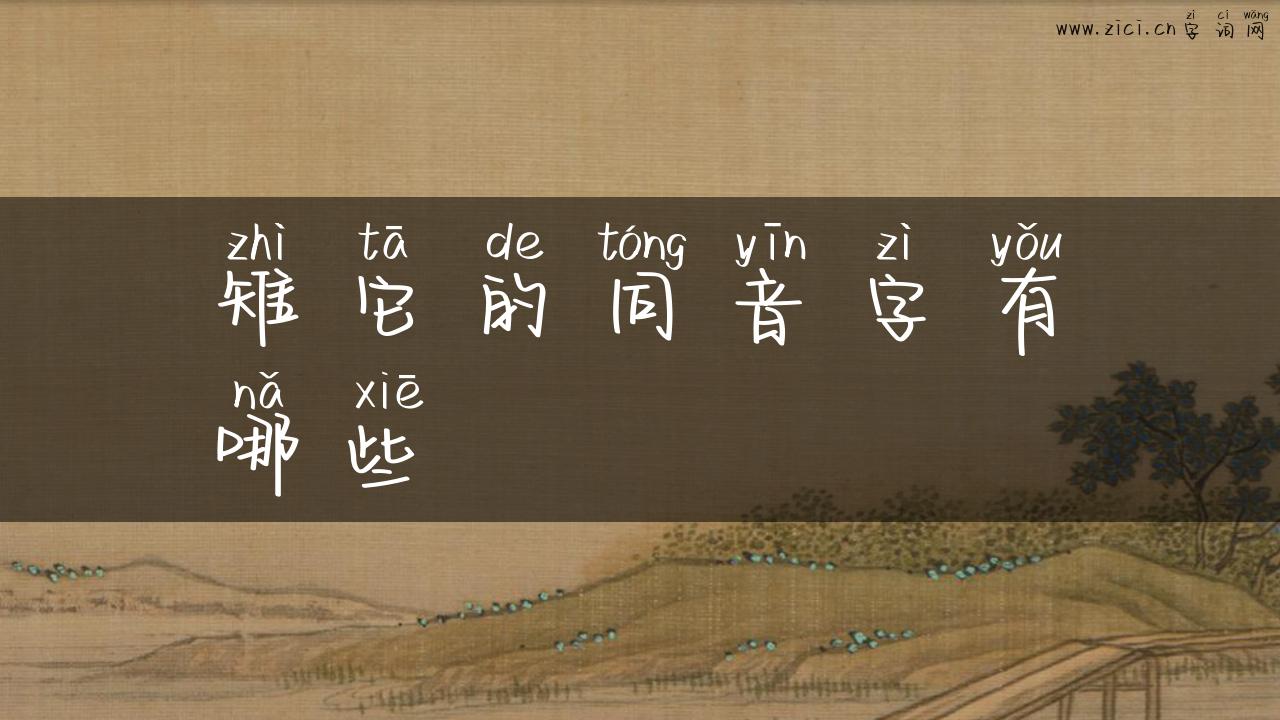 zì cí wǎng
www.zici.cn 字词网
zhì tā de tóng yīn zì yǒu
雉它的同音字有
nǎ xiē
哪些